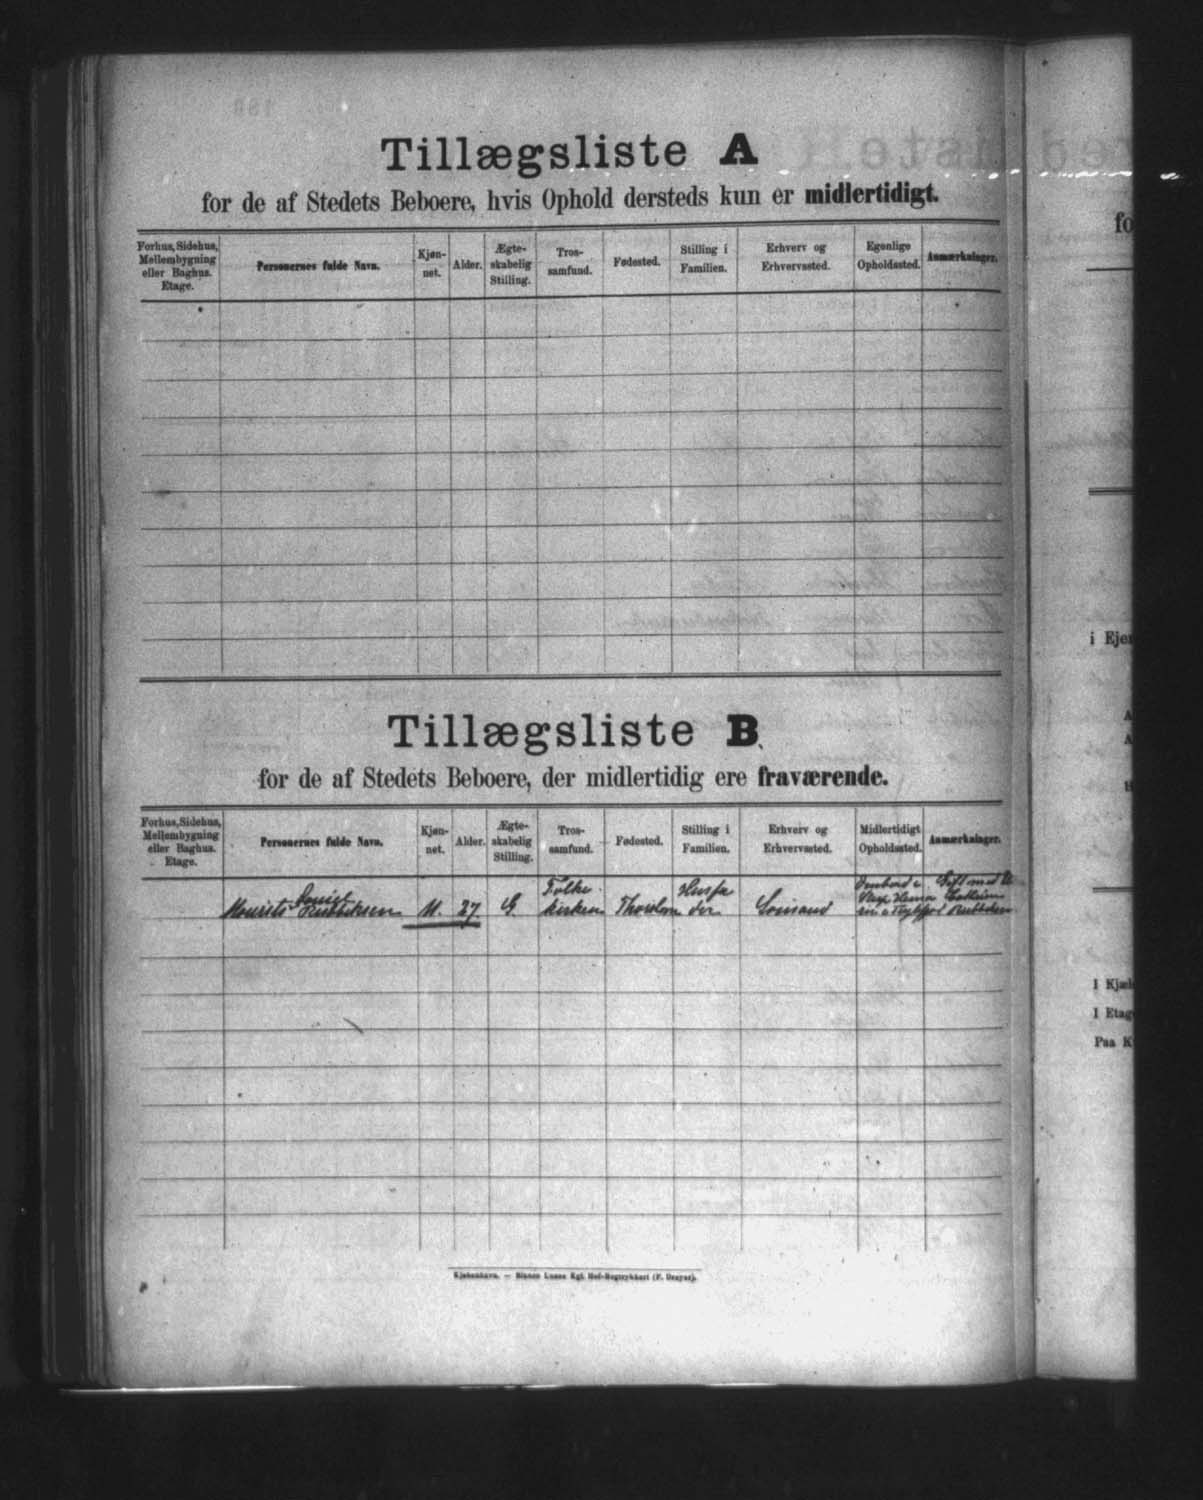 Tillægsliste A
for de af Stedets Beboere, hvis Ophold dersteds kun er midlertidigt.
Forhus, Sidehus, Mellembygning eller Baghus. Etage.
Personernes fulde Navn.
Kjøn-
net.
Alder.
Ægte-
skabelig
Stilling.
Tros-
samfund.
Fødested.
Stilling i
Familien.
Erhverv og
Erhvervssted.
Egenlige
Opholdssted.
Anmærkninger.
Tillægsliste B.
for de af Stedets Beboere, der midlertidig ere fraværende.
Forhus, Sidehus,
Mellembygning
eller Baghus.
Etage.
Personernes fulde Navn.
Kjøn-
net.
Alder.
Ægte-
skabelig
Stilling.
Tros-
samfund.
Fødested.
Stilling i
Familien.
Erhverv og
Erhvervssted.
Midlertidigt
Opholdssted.
Anmærkninger.
Mourits
M.
37
G.
Folke
kirken
Husfa
der
Gift med
Kjøbenhavn. — Bianco Lunos Kgl. Hof-Bogtrykkeri (F. Dreyer).
fo
i Ejer
I Kjæl
I Etag
Paa K